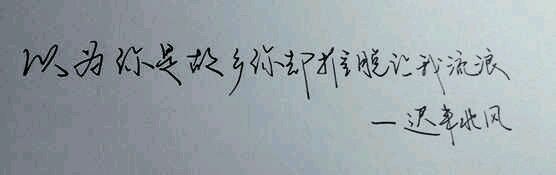 以为你是故乡你却推脱让我流浪
—迟来北风